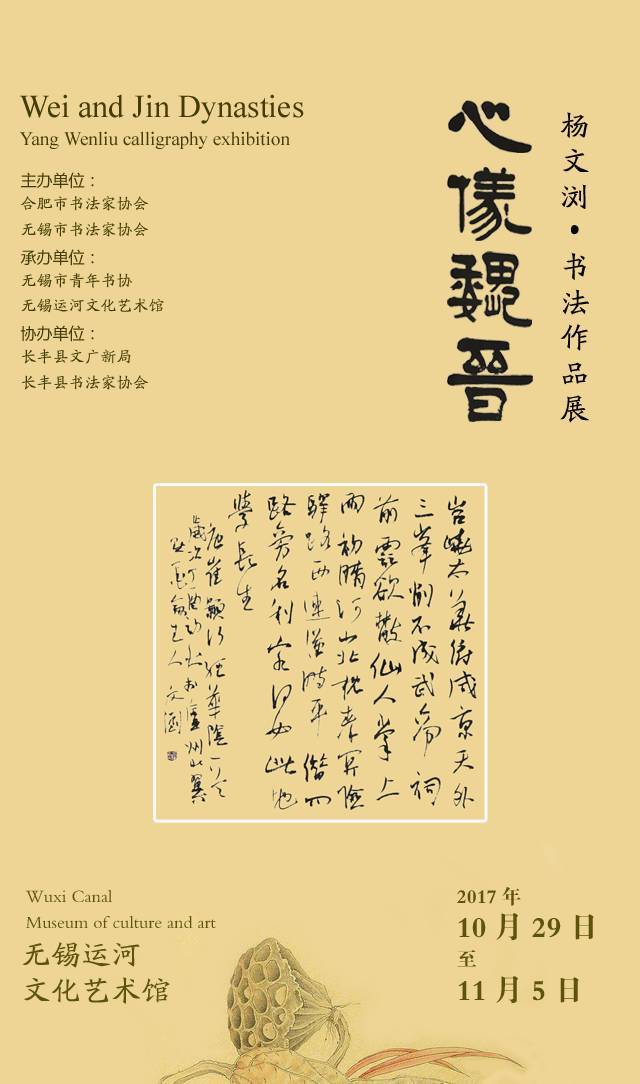 Wei and Jin Dynasties
Yang Wenliu calligraphy exhibition
主办单位：
合肥市书法家协会
无锡市书法家协会
承办单位：
无锡市青年书协
无锡运河文化艺术馆
协办单位：
长丰县文广新局
长丰县书法家协会
心儀魏晉
杨文浏·书法作品展
岧嶢太華俯咸京天外
三峯削不成武帝祠
前雲欲散仙人掌上
雨初晴河山北枕秦関險
驛路西連漢畤平借问
路旁名利客何如此地
學長生
唐崔顥行經華陰一首
歲次丁酉初秋於廬州北翼
主人文瀏
Wuxi Canal
Museum of culture and art
无锡运河
文化艺术馆
2017 年
10 月 29 日
至
11 月 5 日